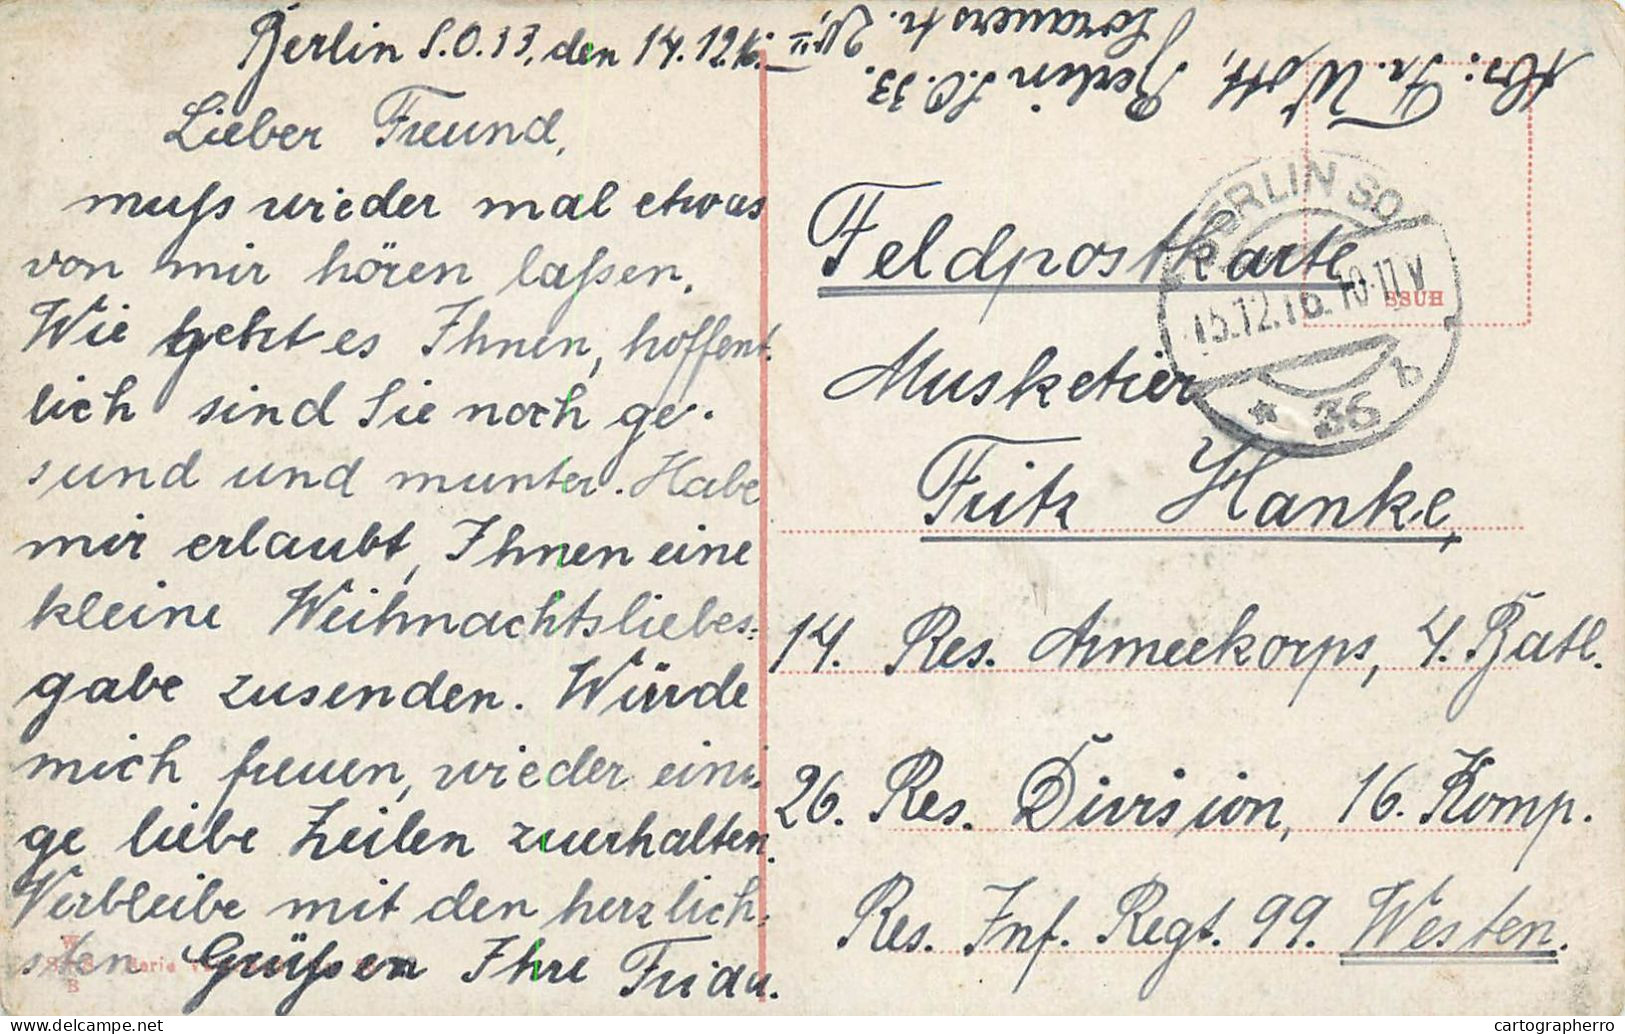 Berlin S.O.33, den 14.12.16.
Lieber Freund,
muß wieder mal etwas
von mir hören laßen.
Wie geht es Ihnen, hoffent-
lich sind Sie noch ge-
sund und munter. Habe
mir erlaubt, Ihnen eine
kleine Weihnachtsliebes=
gabe zusenden. Würde
mich freuen, wieder eini=
ge liebe Zeilen zuerhalten.
Verbleibe mit den herzlich=
sten Grüßen Ihre Frida.
Abs: Fr. Wott, Berlin S.O. 33.
Sorauerstr. III
BERLIN SO
15.12.16. 10-11 V
* 36 b
SSUH
Feldpostkarte
Musketier
Fritz Hanke,
14. Res. Armeekorps, 4. Batl.
26. Res. Division, 16. Komp.
Res. Inf. Regt. 99. Westen.
W
B
Serie
cartographerro